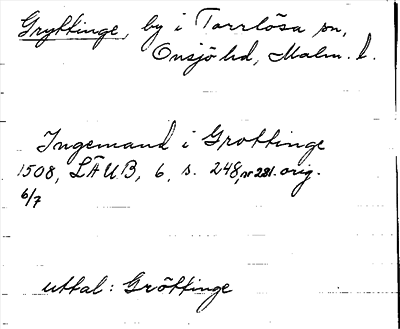 Gryttinge, by i Torrlösa sn,
Onsjö hd, Malm. l.
Ingemand i Grottinge
1508, LÄUB, 6, s. 248, nr 281. orig.
6/7
uttal: Gröttinge